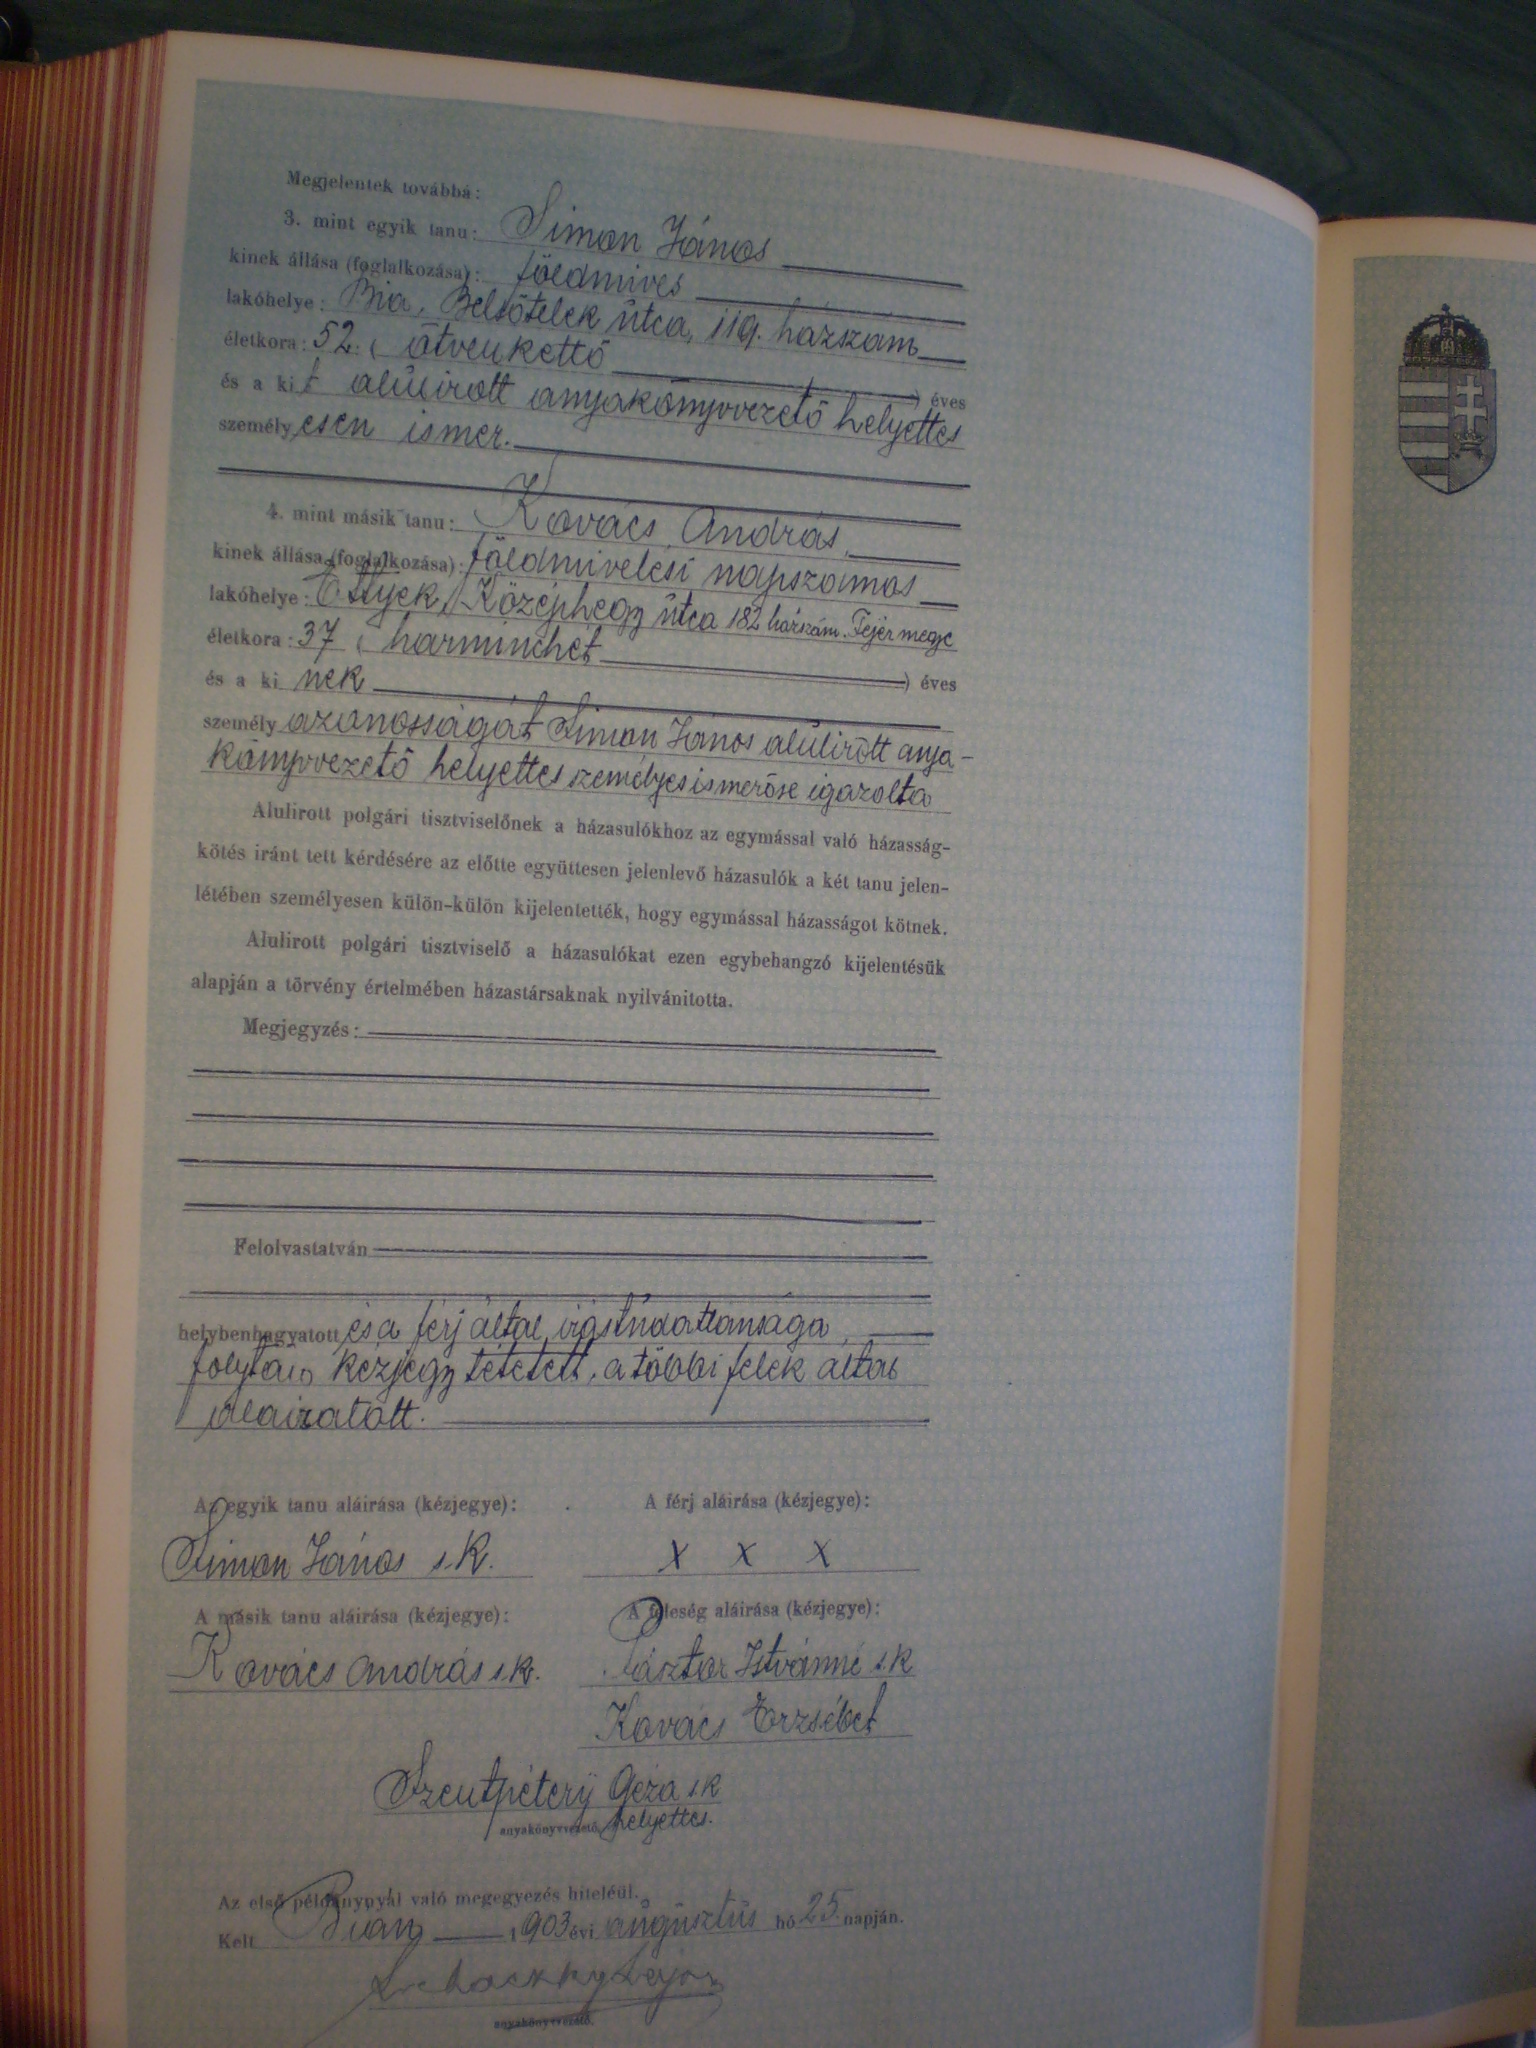 Megjelentek továbbá:
3. mint egyik tanu: Simon János
kinek állása (foglalkozása): földmives
lakóhelye: Bia, Belsőtelek útca, 119. házszám
életkora: 52. ( ötvenkettő ) éves
és a kit alúlirott anyakönyvvezető helyettes
személyesen ismer.
4. mint másik tanu: Kovács András,
kinek állása (foglalkozása): földmivelési napszámos
lakóhelye: Ettyek, Középhegy útca 182 házszám. Fejér megye
életkora: 37 ( harminchét ) éves
és a kinek
személy azonosságát Simon János alúlirott anya-
könyvvezető helyettes személyes ismerőse igazolta
Alulirott polgári tisztviselőnek a házasulókhoz az egymással való házasság-
kötés iránt tett kérdésére az előtte együttesen jelenlevő házasulók a két tanu jelen-
létében személyesen külön-külön kijelentették, hogy egymással házasságot kötnek.
Alulirott polgári tisztviselő a házasulókat ezen egybehangzó kijelentésük
alapján a törvény értelmében házastársaknak nyilvánitotta.
Megjegyzés:
Felolvastatván
helybenhagyatott, és a férj által, irástúdatlansága,
folytán kézjegy tétetett, a többi felek által
aláiratott.
Az egyik tanu aláirása (kézjegye): A férj aláirása (kézjegye):
Simon János s.k. x x x
A másik tanu aláirása (kézjegye): A feleség aláirása (kézjegye):
Kovács András s.k. Pásztor Istvánné s.k
Kovács Erzsébet
Szentpétery Géza s k
anyakönyvvezető helyettes.
Az első példánynyal való megegyezés hiteléül.
Kelt Bián 1903 évi augusztús hó 25 napján.
anyakönyvvezető.